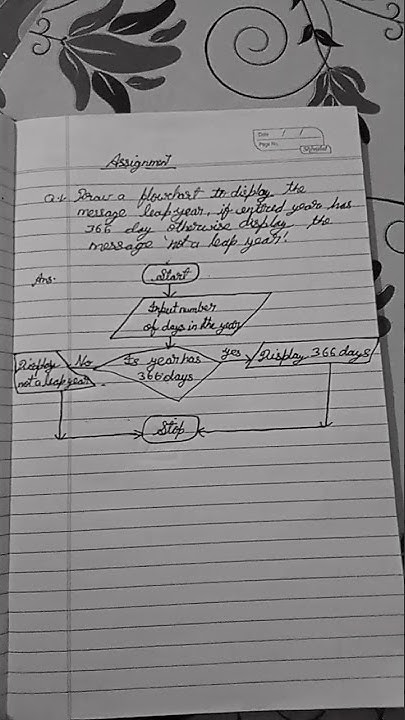 Date / /
Page No.
Assignment
Q.1. Draw a flowchart to display the
message leap year, if entered year has
366 day otherwise display the
message 'not a leap year'.
Ans.
Start
Input number
of days in the year
Is year has
366 days
No
Display
not a leap year
Yes
Display 366 days
Stop